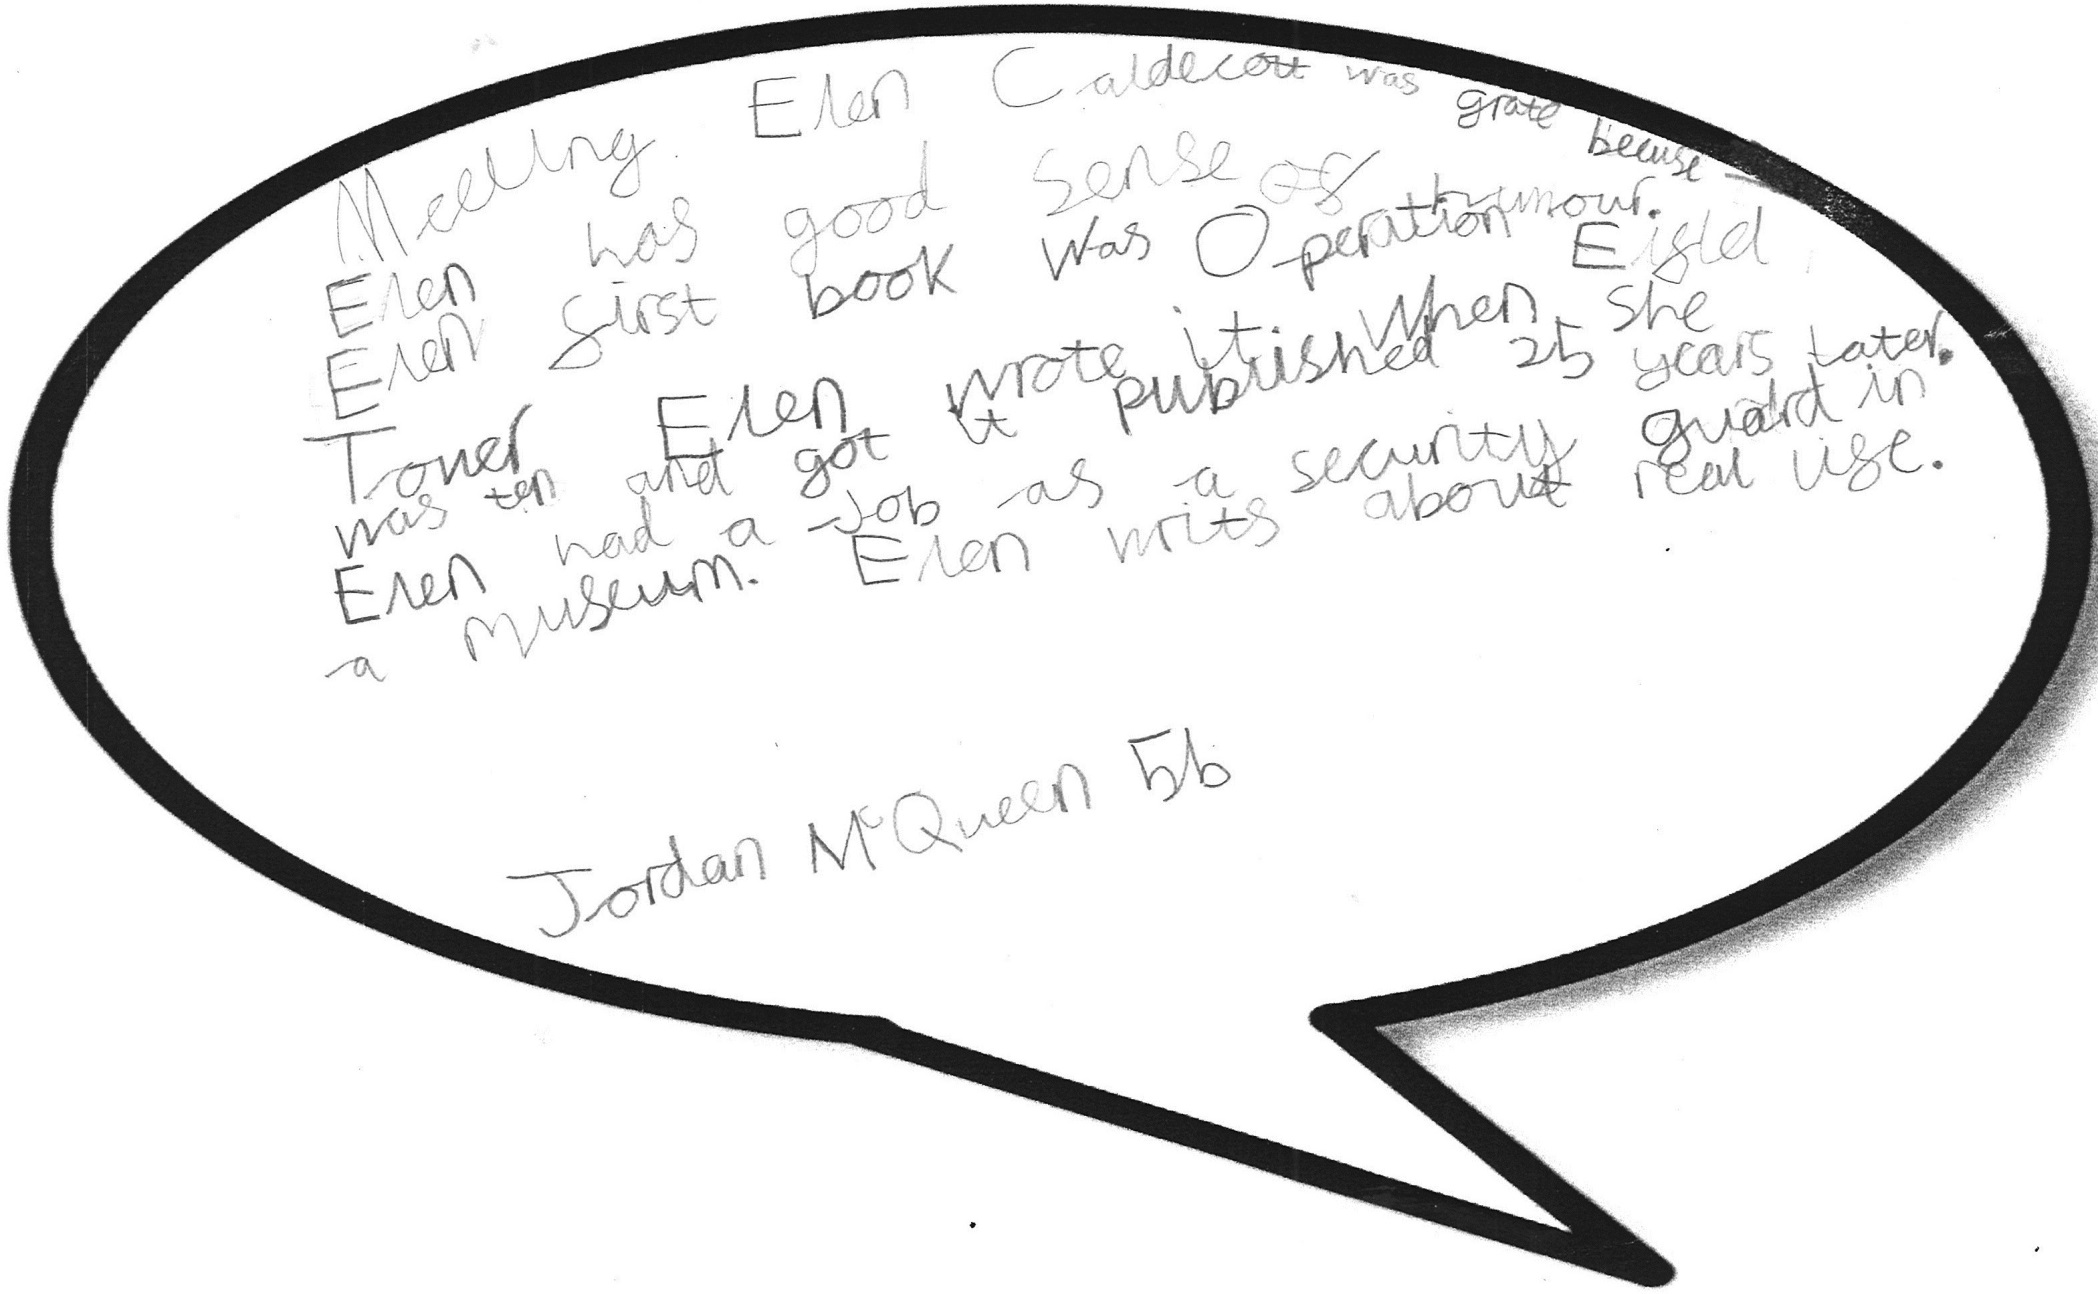 Meeting Elen Caldecott was grate becuse
Elen has good sense of humour.
Elen first book was Operation Eifld
Tower Elen wrote it When she
was ten and got it published 25 years later.
Elen had a Job as a security guard in
a museum. Elen writs about real life.
Jordan McQueen 5b